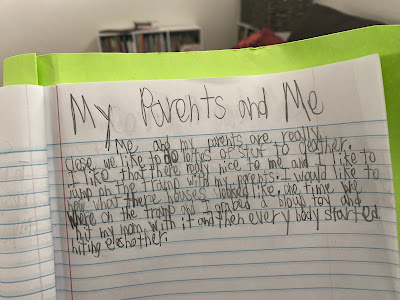 My Parents and Me
Me and my parents are really
close we like to do lottes of stuf to geather.
I like that there realy nice to me, and I like to
jump on the tramp with my parents. I would like to
know what there houses looked like, one time we
where on the tramp and I grabed a blow toy and
I hit my mom with it and then every body started
hiting eachother.